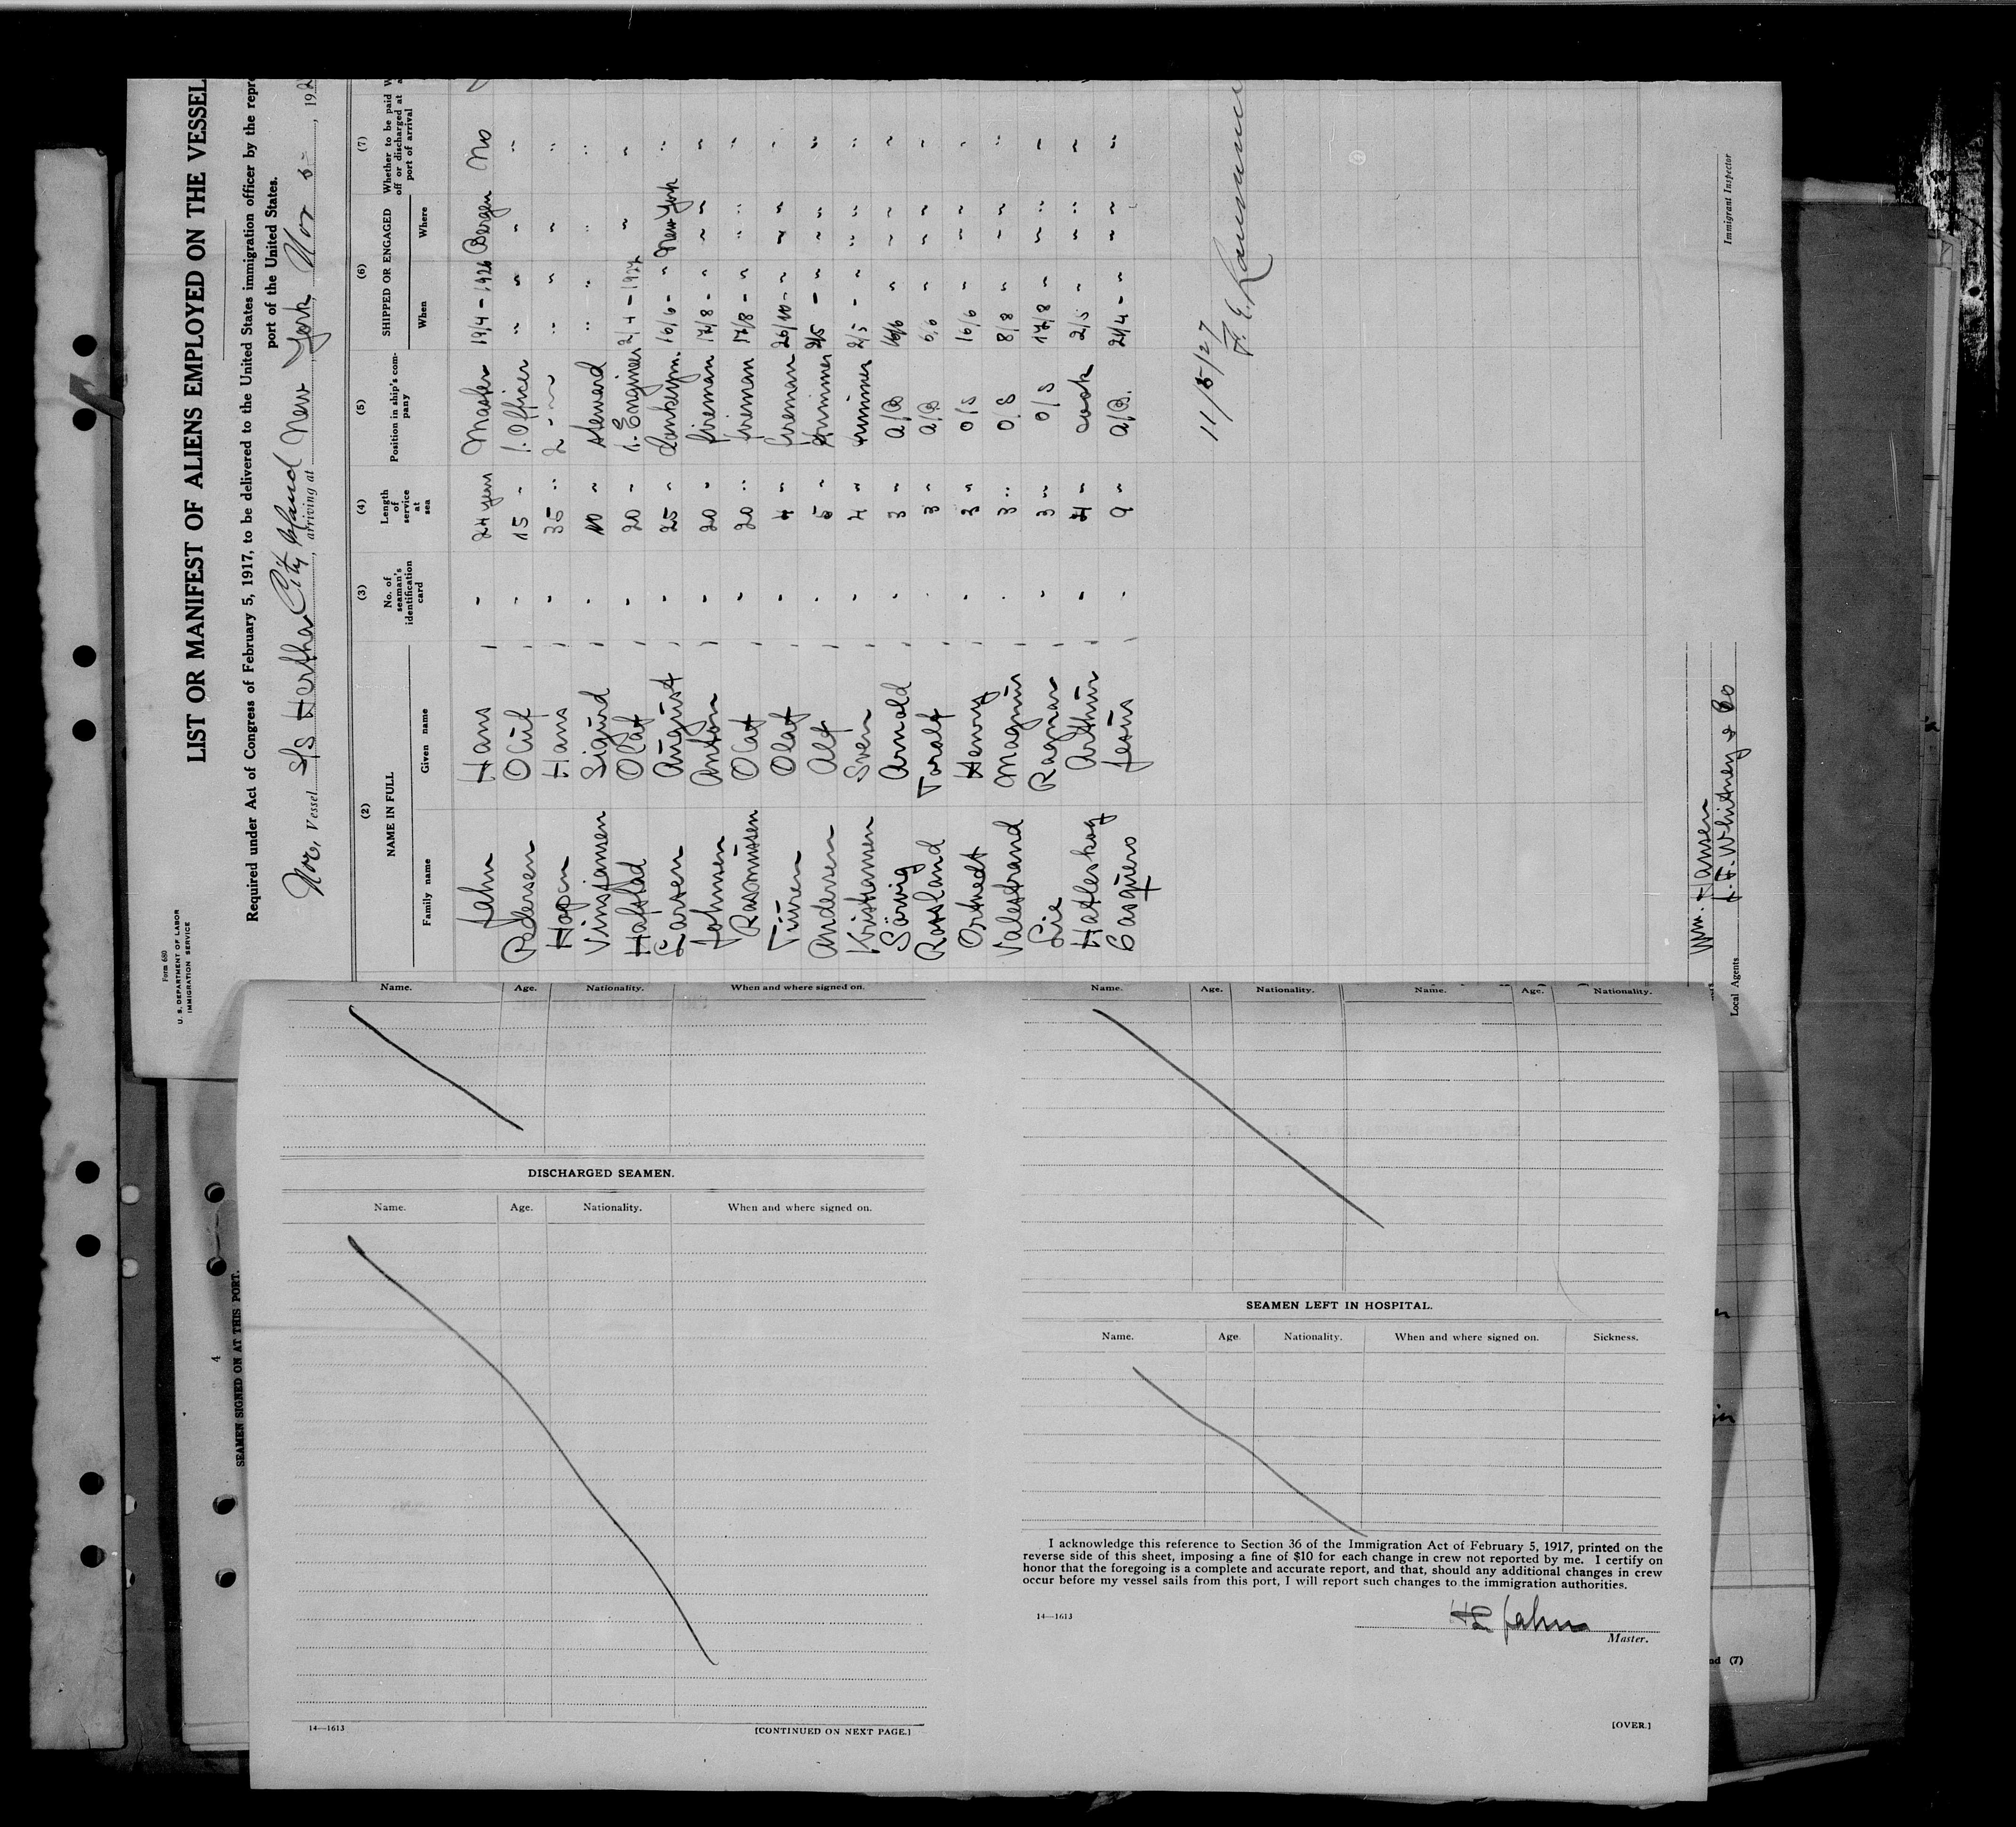 Form 680
U. S. DEPARTMENT OF LABOR
IMMIGRATION SERVICE
LIST OR MANIFEST OF ALIENS EMPLOYED ON THE VESSEL
Required under Act of Congress of February 5, 1917, to be delivered to the United States immigration officer by the repr
port of the United States.
Nor, Vessel S/S Hertha City Island, arriving at New York, Nov 5, 192
(2) (3) (4) (5) (6) (7)
NAME IN FULL No. of seaman's identification card Length of service at sea Position in ship's company SHIPPED OR ENGAGED Whether to be paid off or discharged at port of arrival
Family name Given name When Where
Jahn Hans - 24 years Master 19/4 - 1926 Bergen No
Pedersen Oluf - 15 " 1. Officer " " " "
Hopen Hans - 35 " 2 - " " " " "
Vinsjansen Sigurd - 10 " steward " " " "
Halstad Olaf - 20 " 1. Engineer 2/4 - 1927 " "
Larsen August - 25 " Donkeym. 16/6 - " New York "
Johnsen Anton - 20 " fireman 17/8 - " " " "
Rasmussen Olaf - 20 " fireman 17/8 - " " " "
Tüüren Olaf - 4 " fireman 26/10 - " " " "
Andersen Alf - 5 " trimmer 2/5 - " " " "
Kristiansen Sven - 4 " trimmer 2/5 - " " " "
Sörvig Arnold - 3 " A/B 16/6 " " " "
Rossland Toralf - 3 " A/B 6/6 " " " "
Ortvedt Henry - 3 " O/S 16/6 " " " "
Valestrand Magnus - 3 " O/S 8/8 " " " "
Lie Ragnar - 3 " O/S 17/8 " " " "
Hatleskog Arthur - 4 " cook 2/5 " " " "
Casquero Jesus - 9 " A/B. 21/4 - " " " "
11/5/27
Wm. Hansen
Local Agents J. F. Whitney & Co
Immigrant Inspector
4
SEAMEN SIGNED ON AT THIS PORT.
Name. Age. Nationality. When and where signed on.
DISCHARGED SEAMEN.
Name. Age. Nationality. When and where signed on.
14—1613
[CONTINUED ON NEXT PAGE.]
Name. Age. Nationality. Name. Age. Nationality.
SEAMEN LEFT IN HOSPITAL.
Name. Age. Nationality. When and where signed on. Sickness.
I acknowledge this reference to Section 36 of the Immigration Act of February 5, 1917, printed on the
reverse side of this sheet, imposing a fine of $10 for each change in crew not reported by me. I certify on
honor that the foregoing is a complete and accurate report, and that, should any additional changes in crew
occur before my vessel sails from this port, I will report such changes to the immigration authorities.
14—1613
Jahn
Master.
[OVER.]
nd (7)